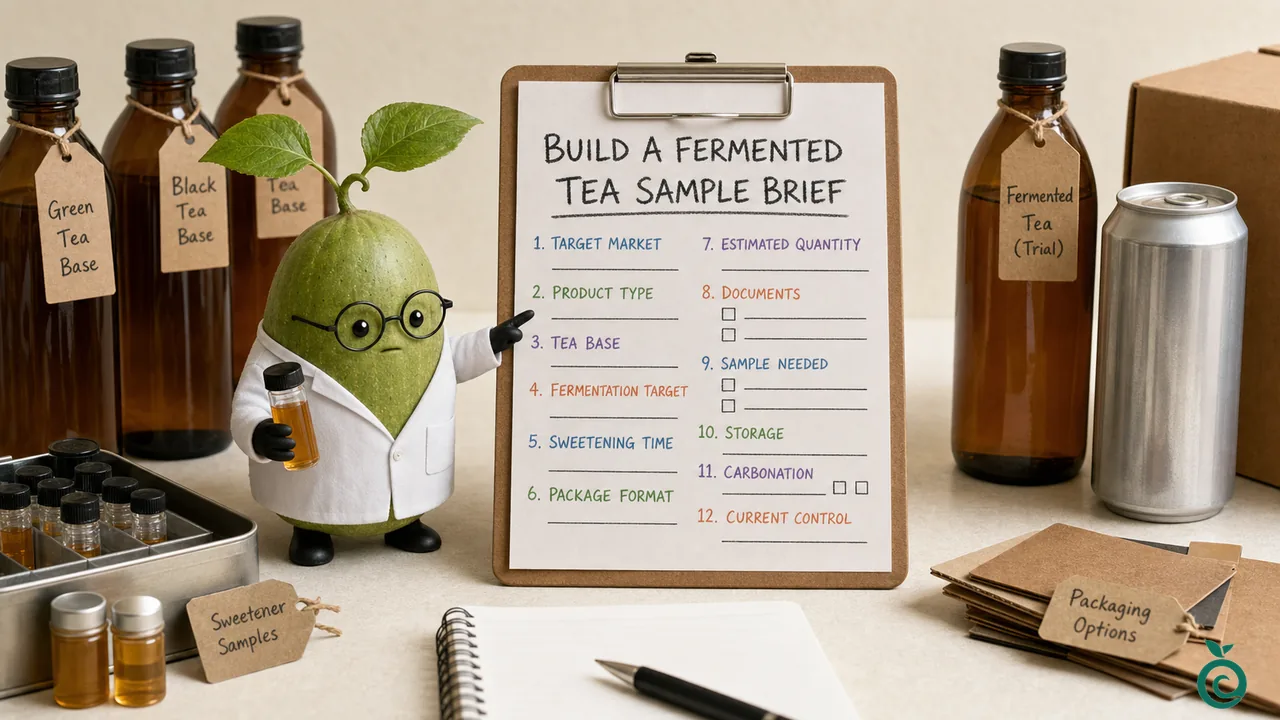 BUILD A FERMENTED
TEA SAMPLE BRIEF
1. TARGET MARKET
2. PRODUCT TYPE
3. TEA BASE
4. FERMENTATION TARGET
5. SWEETENING TIME
6. PACKAGE FORMAT
7. ESTIMATED QUANTITY
8. DOCUMENTS
9. SAMPLE NEEDED
10. STORAGE
11. CARBONATION
12. CURRENT CONTROL
Green
Tea
Base
Black
Tea
Base
Tea
Base
Fermented
Tea
(Trial)
Sweetener
Samples
Packaging
Options